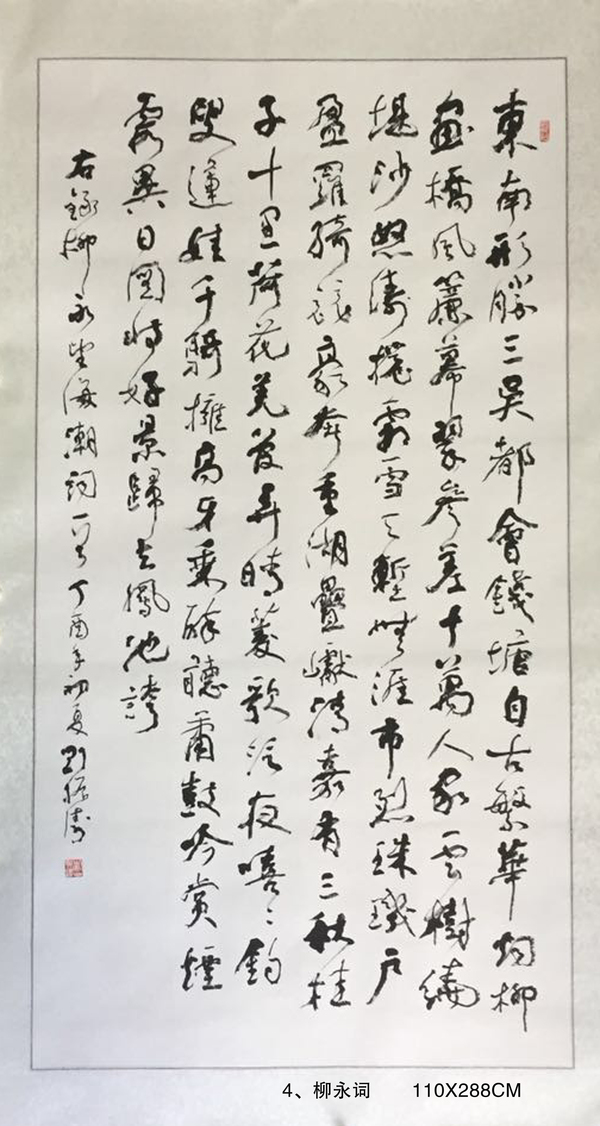 東南形勝三吳都會錢塘自古繁華烟柳
畫橋風簾幕翠參差十萬人家雲樹繞
堤沙怒濤捲霜雪天塹無涯市烈珠璣户
盈羅綺競豪奢重湖疊巘清嘉有三秋桂
子十里荷花羌管弄晴菱歌泛夜嘻〻釣
叟蓮娃千騎擁高牙乘醉聽簫鼓吟賞煙
霞異日圖將好景歸去鳳池誇
右錄柳永望海潮詞一首丁酉年初夏劉振濤
4、柳永词 110X288CM